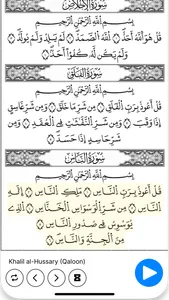 سُورَةُ الإِخْلَاصِ
بِسْمِ اللَّهِ الرَّحْمَٰنِ الرَّحِيمِ
قُلْ هُوَ اللَّهُ أَحَدٌ ۝ اللَّهُ الصَّمَدُ ۝ لَمْ يَلِدْ وَلَمْ يُولَدْ ۝
وَلَمْ يَكُن لَّهُ كُفُؤًا أَحَدٌ ۝
سُورَةُ الْفَلَقِ
بِسْمِ اللَّهِ الرَّحْمَٰنِ الرَّحِيمِ
قُلْ أَعُوذُ بِرَبِّ الْفَلَقِ ۝ مِن شَرِّ مَا خَلَقَ ۝ وَمِن شَرِّ غَاسِقٍ
إِذَا وَقَبَ ۝ وَمِن شَرِّ النَّفَّٰثَٰتِ فِي الْعُقَدِ ۝ وَمِن
شَرِّ حَاسِدٍ إِذَا حَسَدَ ۝
سُورَةُ النَّاسِ
بِسْمِ اللَّهِ الرَّحْمَٰنِ الرَّحِيمِ
قُلْ أَعُوذُ بِرَبِّ النَّاسِ ۝ مَلِكِ النَّاسِ ۝ إِلَٰهِ
النَّاسِ ۝ مِن شَرِّ الْوَسْوَاسِ الْخَنَّاسِ ۝ الَّذِي
يُوَسْوِسُ فِي صُدُورِ النَّاسِ ۝
مِنَ الْجِنَّةِ وَالنَّاسِ ۝
Khalil al-Hussary (Qaloon)